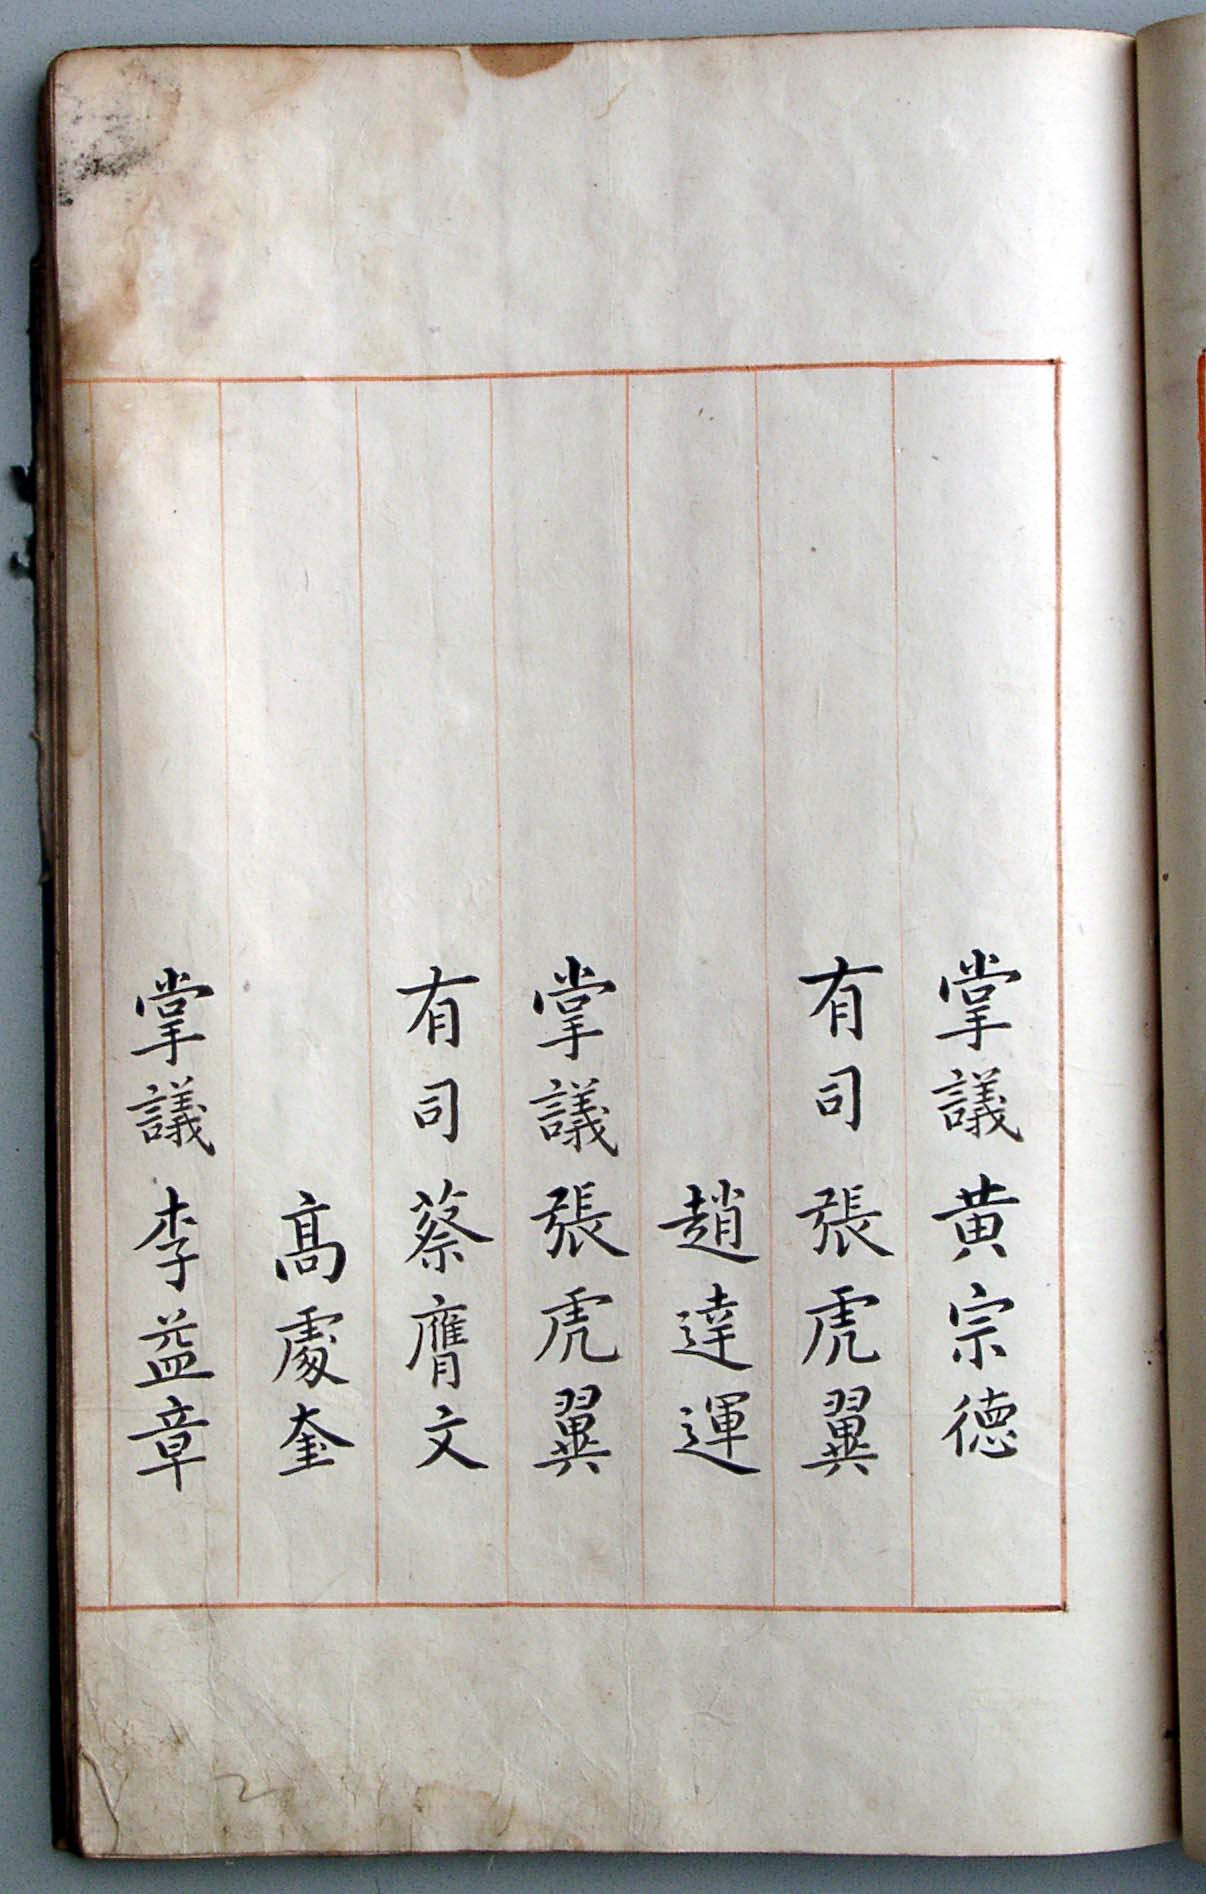 掌議黄宗德
有司張虎翼
趙達運
掌議張虎翼
有司蔡膺文
高處奎
掌議李益章